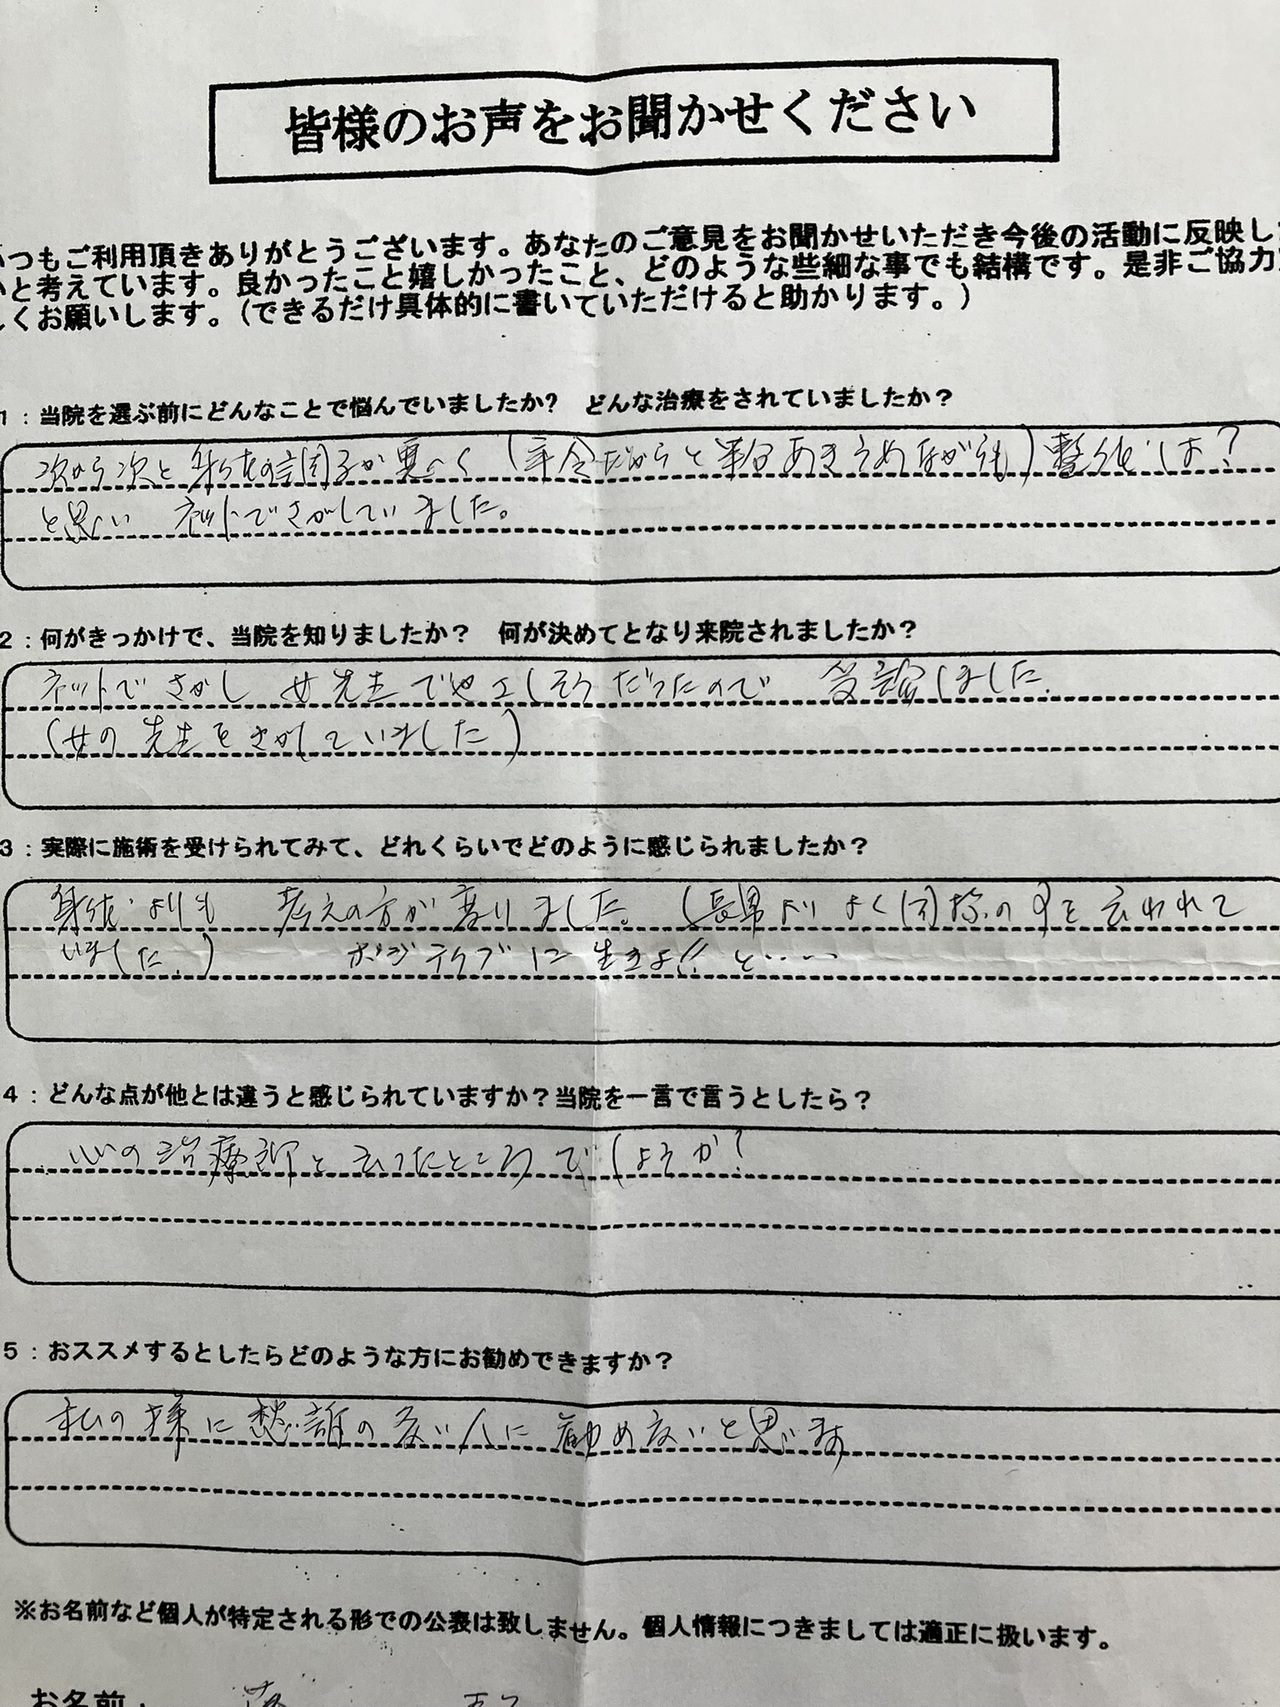 皆様のお声をお聞かせください
いつもご利用頂きありがとうございます。あなたのご意見をお聞かせいただき今後の活動に反映し
いと考えています。良かったこと嬉しかったこと、どのような些細な事でも結構です。是非ご協力
しくお願いします。(できるだけ具体的に書いていただけると助かります。)
1：当院を選ぶ前にどんなことで悩んでいましたか？　どんな治療をされていましたか？
次から次と身体の調子が悪く（年令だからと半分あきらめながらも）整体は？
と思い ネットでさがしていました。
2：何がきっかけで、当院を知りましたか？　何が決めてとなり来院されましたか？
ネットでさがし 女先生でやさしそうだったので 受診しました。
（女の先生をさがしていました）
3：実際に施術を受けられてみて、どれくらいでどのように感じられましたか？
身体よりも 考えの方が変りました。（長男より よく同様の事を云われて
いました。） ポジティブに生きよ!! と……
4：どんな点が他とは違うと感じられていますか？当院を一言で言うとしたら？
心の治療師と云ったところでしょうか？
5：おススメするとしたらどのような方にお勧めできますか？
私の様に愁訴の多い人に 勧めたいと思います
※お名前など個人が特定される形での公表は致しません。個人情報につきましては適正に扱います。
お名前：